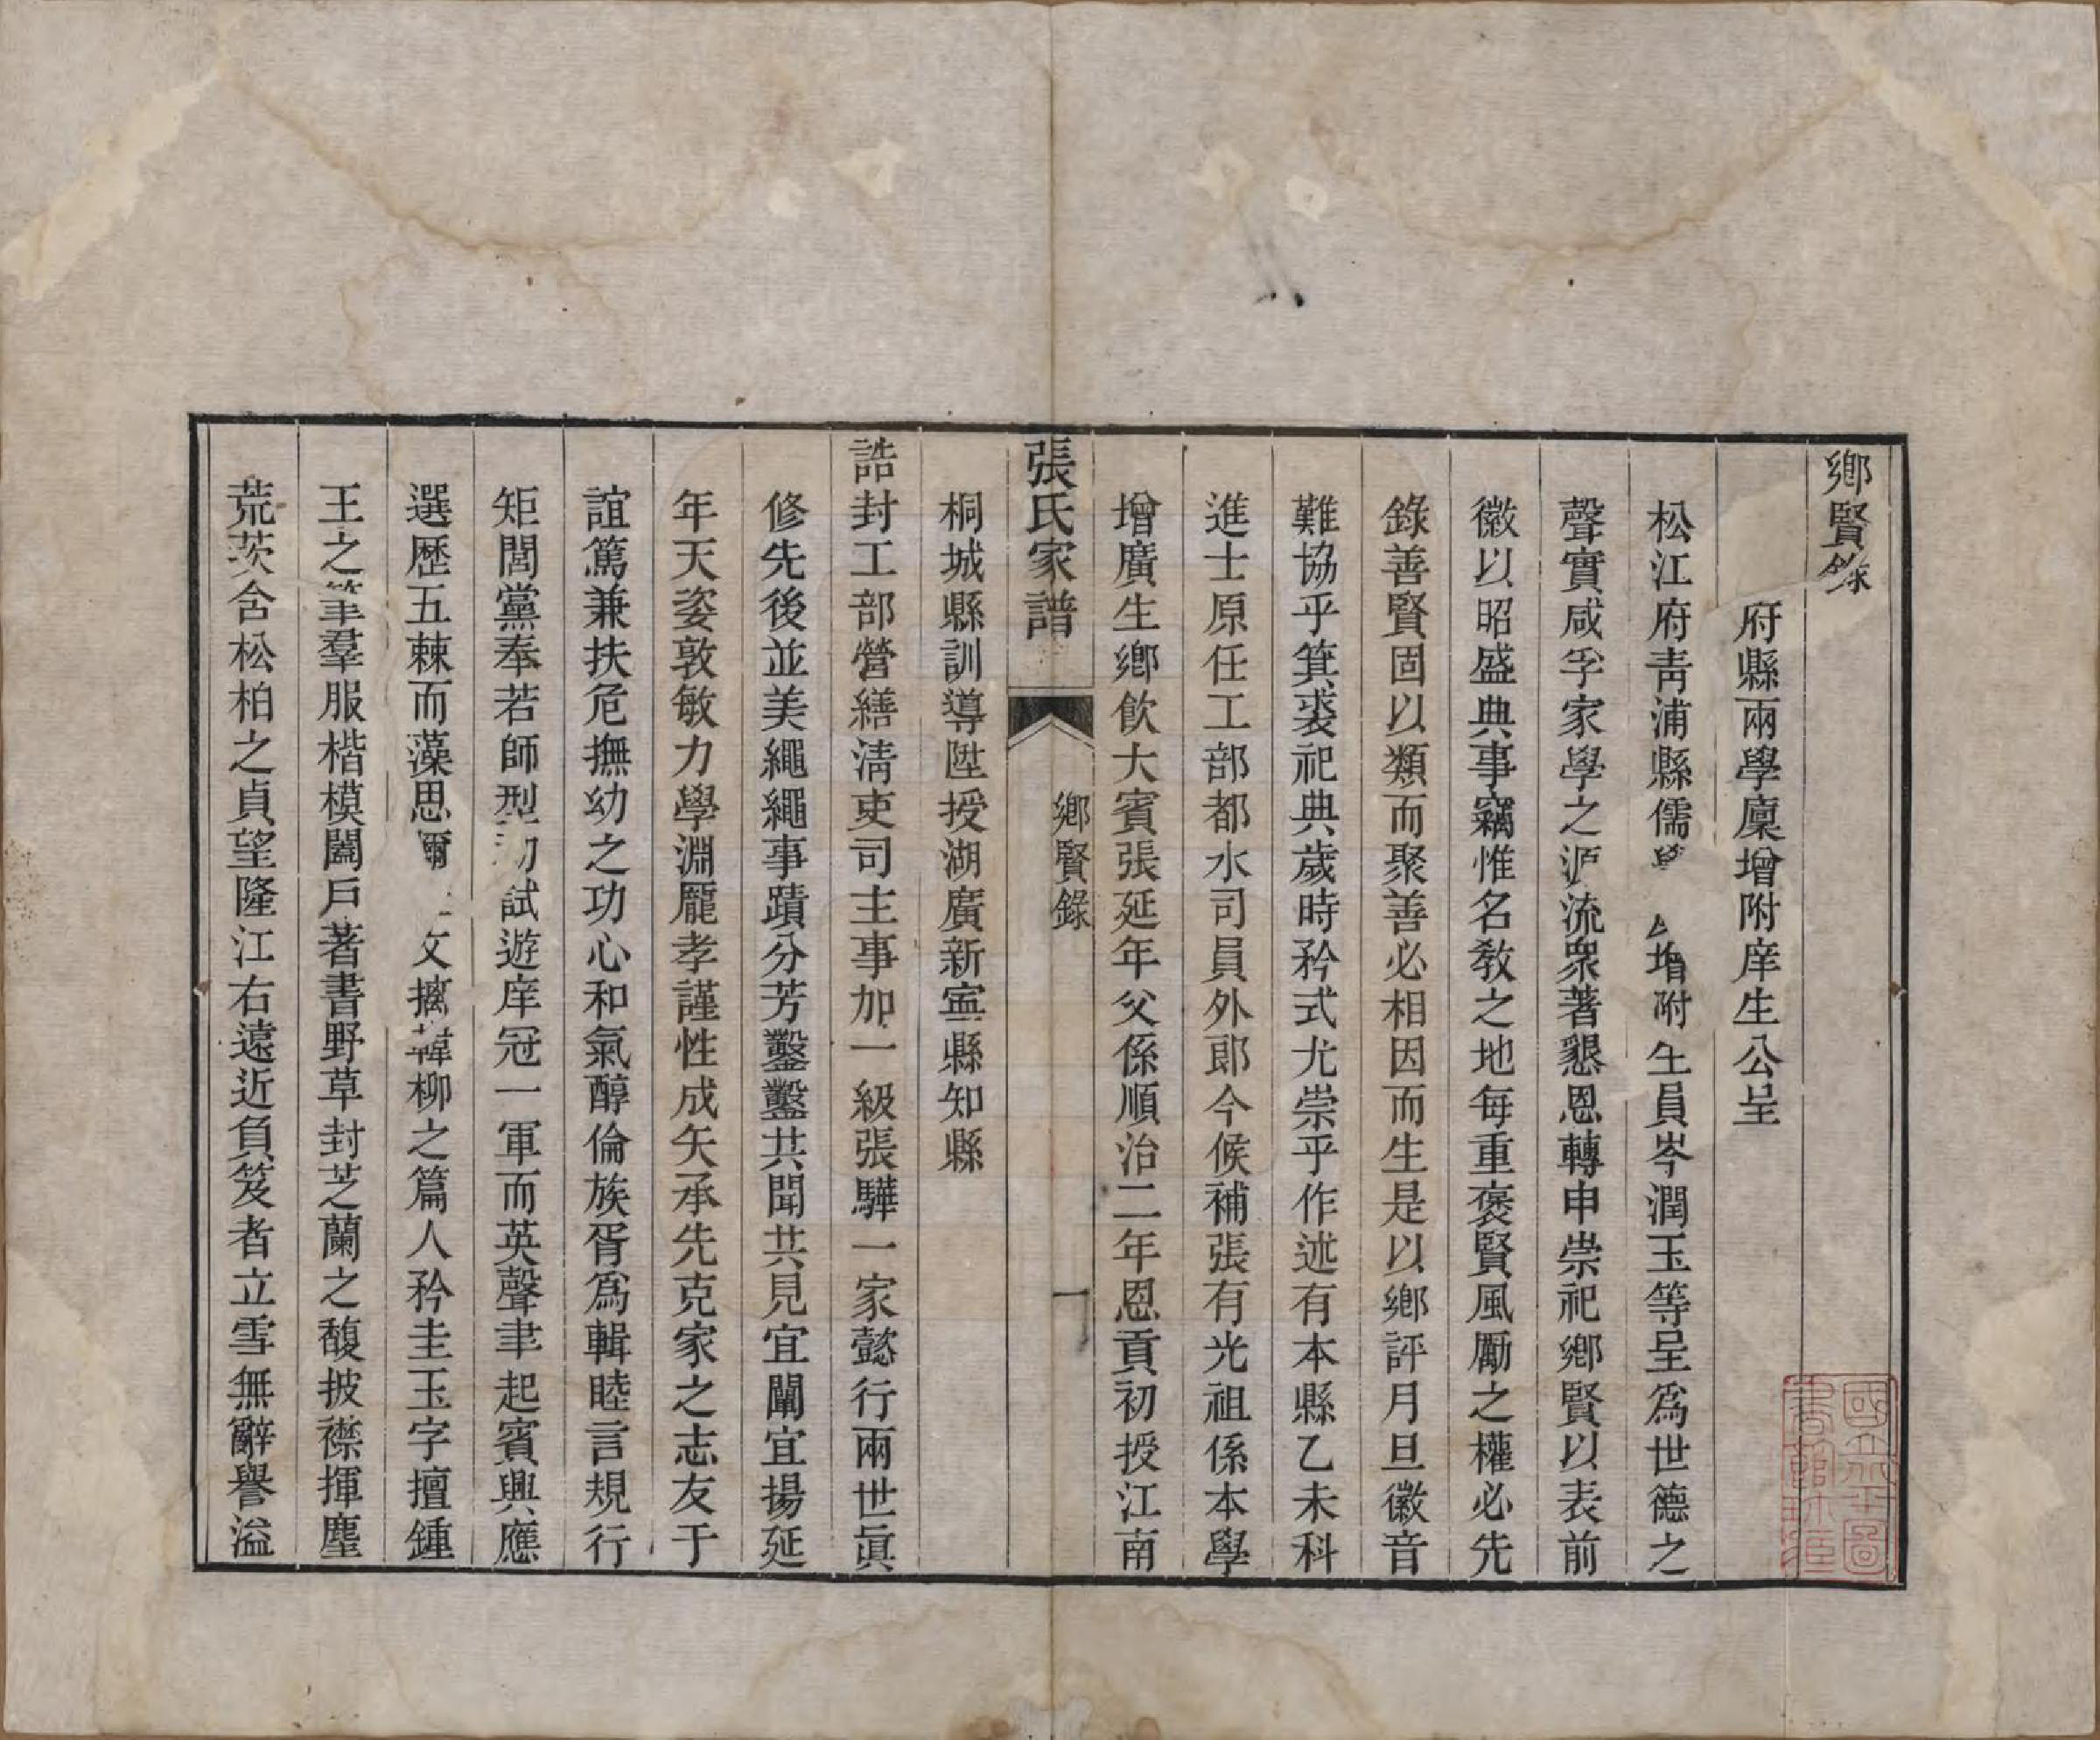 鄉賢錄
府縣兩學廩增附庠生公呈
松江府靑浦縣儒學增附生員岑潤玉等呈爲世德之
聲實咸孚家學之源流衆著懇恩轉申崇祀鄉賢以表前
徽以昭盛典事竊惟名敎之地每重褒賢風勵之權必先
錄善賢固以類而聚善必相因而生是以鄉評月旦徽音
難協乎箕裘祀典歲時矜式尤崇乎作述有本縣乙未科
進士原任工部都水司員外郎今候補張有光祖係本學
增廣生鄉飲大賓張延年父係順治二年恩貢初授江南
張氏家譜
鄉賢錄
一
桐城縣訓導陞授湖廣新寧縣知縣
誥封工部營繕淸吏司主事加一級張驊一家懿行兩世眞
修先後並美繩繩事蹟分芳鑿鑿共聞共見宜闡宜揚延
年天姿敦敏力學淵龎孝謹性成矢承先克家之志友于
誼篤兼扶危撫幼之功心和氣醇倫族胥爲輯睦言規行
矩閭黨奉若師型初試遊庠冠一軍而英聲聿起賓興應
選歷五棘而藻思彌文摛韓柳之篇人矜圭玉字擅鍾
王之筆羣服楷模闔戶著書野草封芝蘭之馥披襟揮塵
荒茨含松柏之貞望隆江右遠近負笈者立雪無辭譽溢